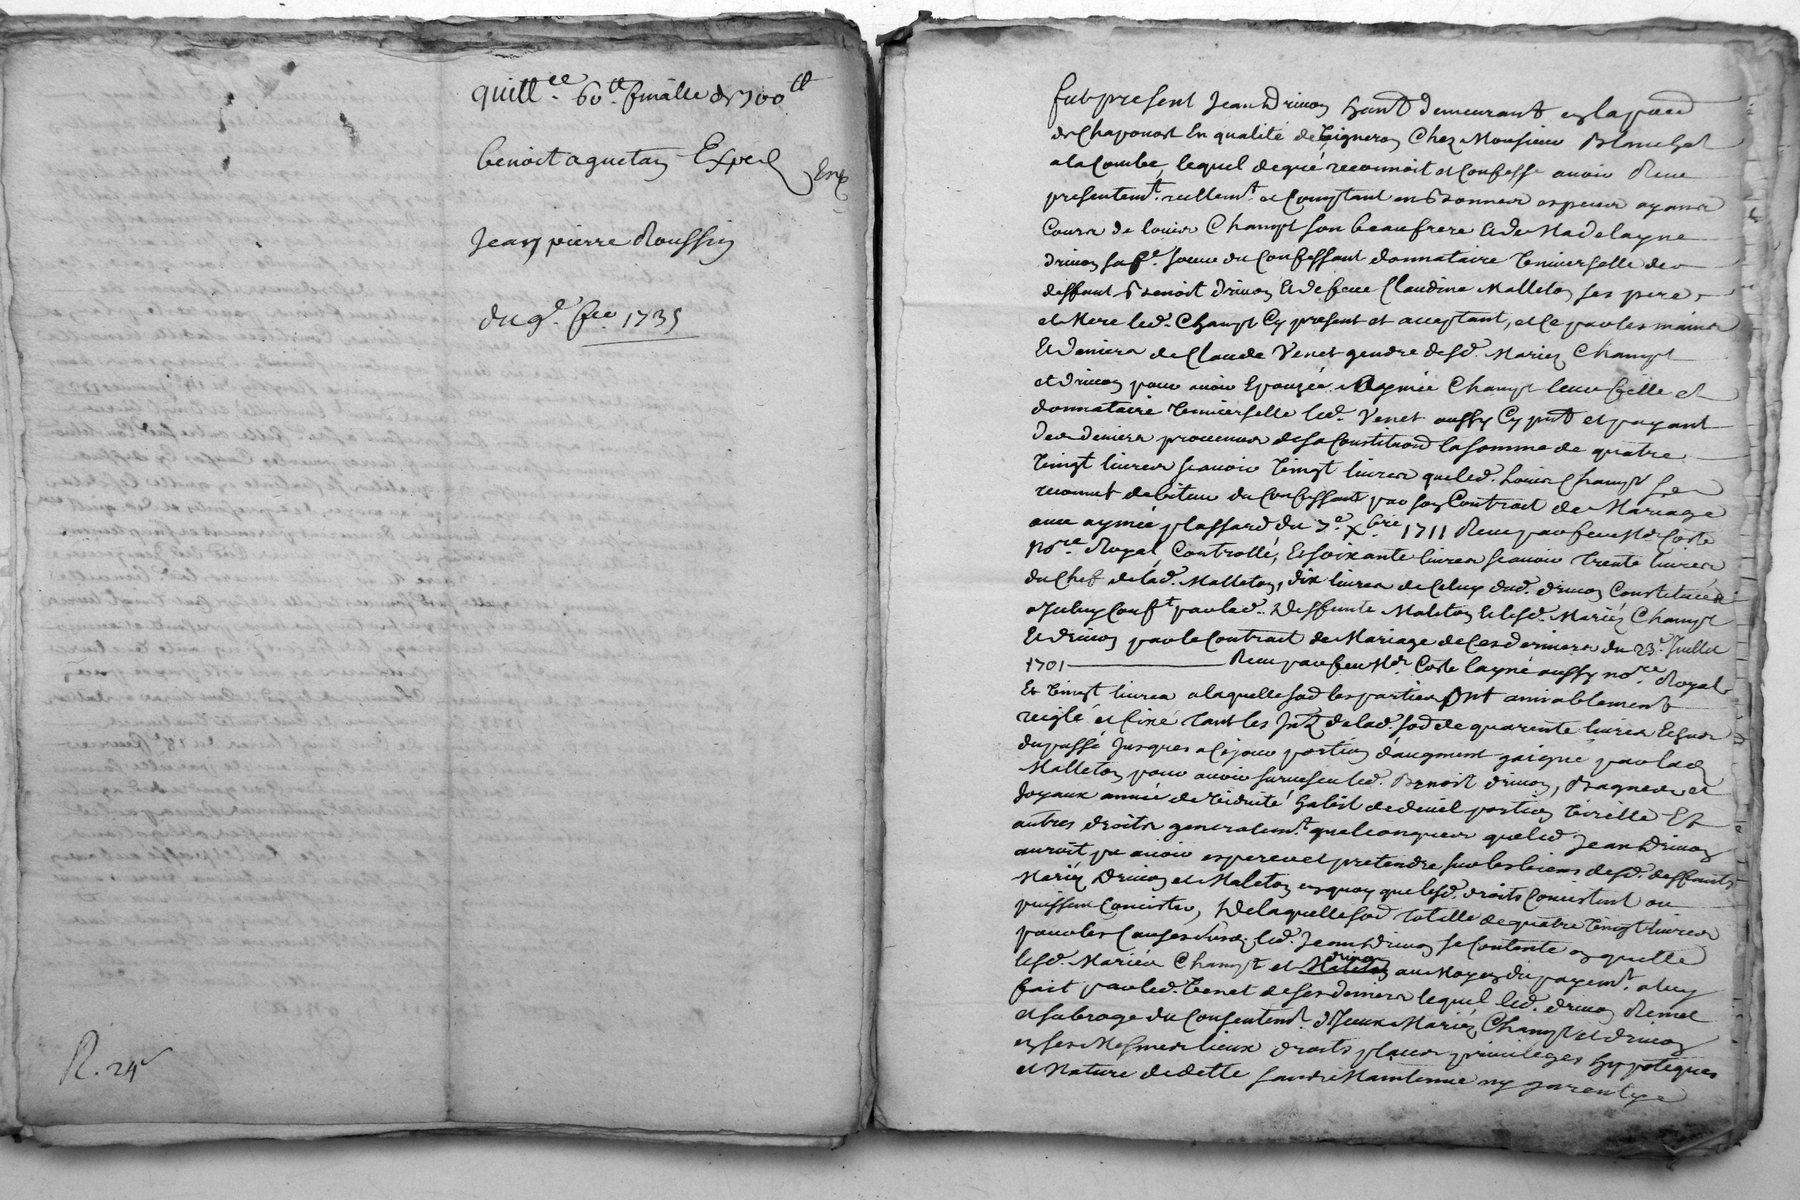 quitt.ce 60.tt finalle de 700tt
benoist aguetan Exped
Enq
Jean pierre Roussin
du 9.e fev 1735
R. 24s
fut present Jean Drivon habt demeurant en la parr
de Chaponost En qualité de Vigneron Chez Monsieur Blanchet
a la Combe, lequel de gré reconnoit et Confesse avoir Receu
presentem.t reellem.t et Comptant en bonnes especes ayans
Cours de louis Champt son beaufrere et de Madelayne
drivon sa f.e soeur du Confessant donnataire Universelle de
deffunt Benoist drivon et de feue Claudine Malleton ses pere
et Mere led. Champt Cy present et acceptant, et Ce par les mains
Et deniers de Claude Venet gendre desd. Mariez Champt
et drivon pour avoir Epouzée Aymée Champt leur fille et
donnataire Universelle led. Venet aussy Cy pnt et payant
des deniers provenus de sa Constitution la somme de quatre
Vingt livres scavoir Vingt livres que led. Louis Champt se
reconnut debiteur du Confessant par son Contract de Mariage
avec aymée plassard du 7.e Xbre 1711 Receu par feu M.e Coste
No.re Royal Controllé, Et soixante livres scavoir trente livres
du Chef de lad. Malleton, dix livres de Celuy dud. drivon Constituées
a Iceluy Conf.t par lad. deffunte Maleton et lesd. Mariéz Champt
Et drivon par le Contract de Mariage de Ces derniers du 23.e Juillet
1701 Receu par feu M.e Coste layné aussy no.re Royal
Et Vingt livres a laquelle sod les parties ont amiablement
reiglé et fixé tant les Intz de lad. sod de quarente livres Echus
du passé Jusques a Ce jour portion d'augment gaigné par lad
Malleton pour avoir survescu led. Benoist drivon, Bagues et
Joyaux année de Viduité habit de deuil portion Virille Et
autres droits generalem.t quelconques que led Jean Drivon
auroit pu avoir esperer et pretendre sur les biens desd. deffunts
Mariéz Drivon et Maleton en quoy que lesd. droits Concistent ou
puissent Concister, De laquelle sod totalle de quatre Vingt livres
pour les Causes susd. led. Jean Drivon se Contente en quitte
lesd. Mariez Champt et Maleton drivon au Moyen du payem.t a luy
fait par led. Venet de ses deniers lequel led. drivon Remet
et subroge du Consentem.t d'Iceux Mariéz Champt et drivon
en ses Mesmes lieux droits places privileges hyppoteques
et Nature de dette sans Maintenue ny garentye